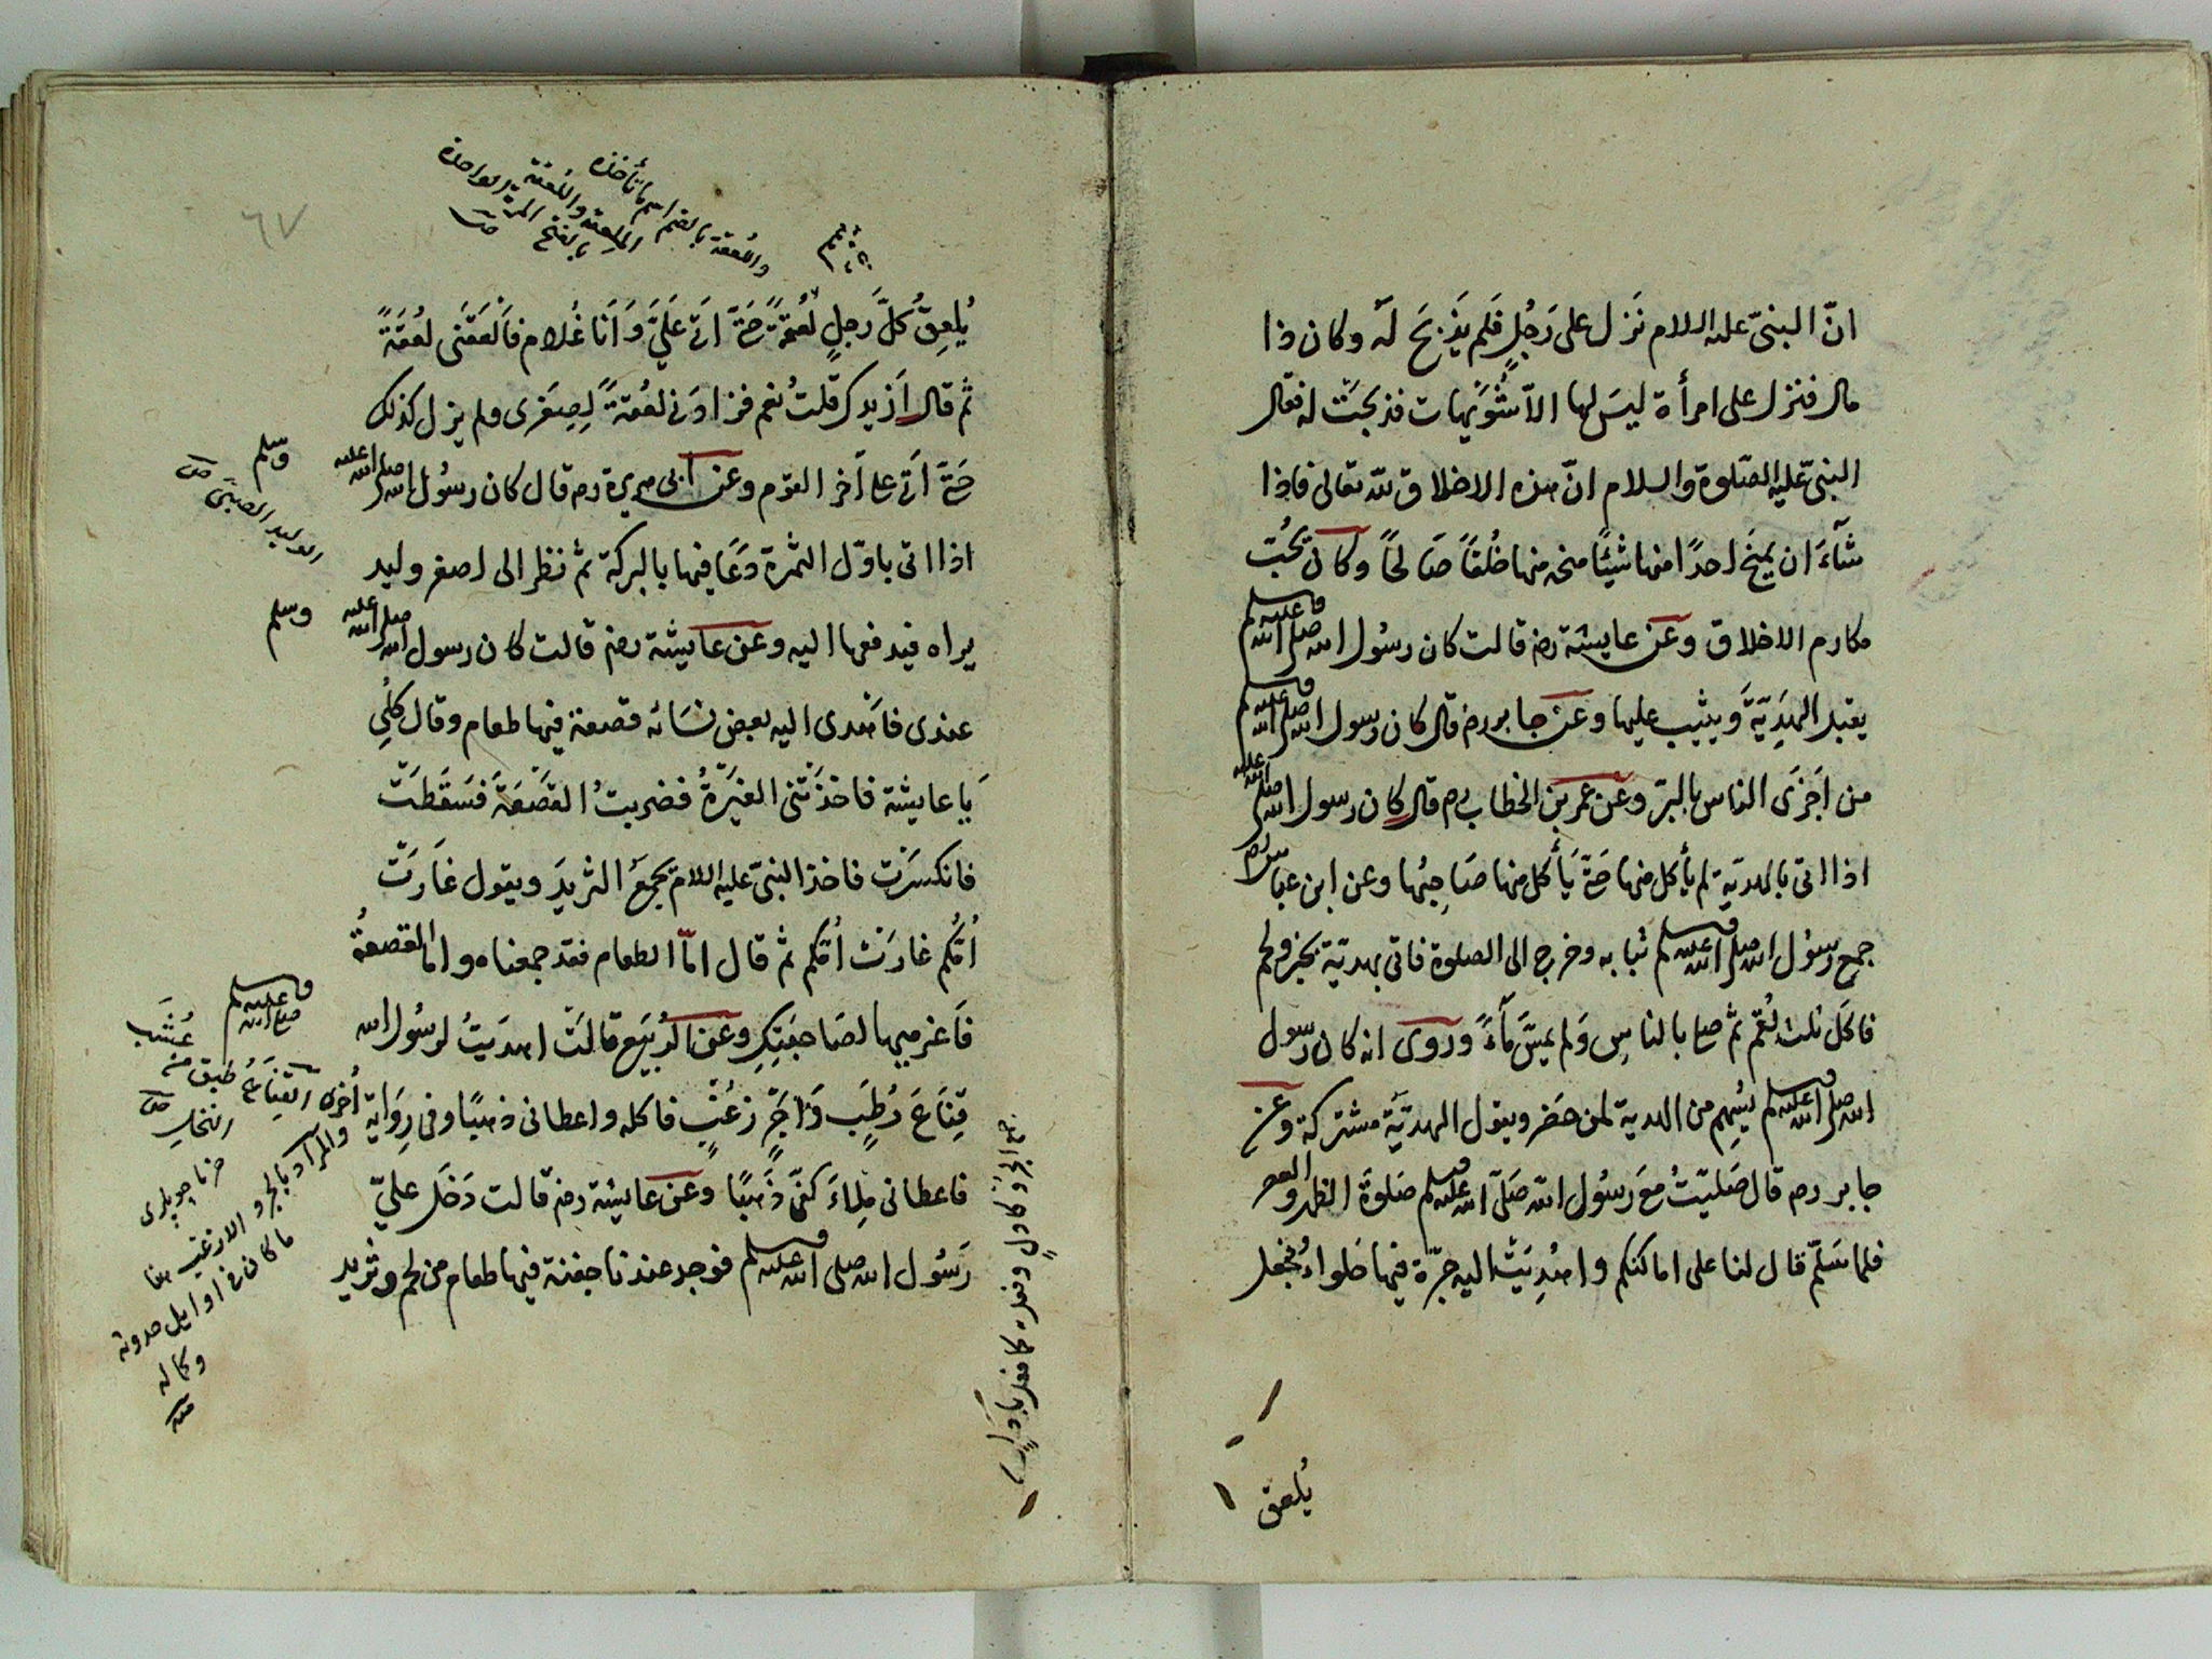 انّ النبىّ عليه السلام نَزل على رَجُلٍ فَلم يَذبَح لَه وكان ذا
مال فنزل على امرأة ليسَ لها الّا شُوَيهات فذبحَتْ له فقال
النبىّ عليه الصّلوة والسلام انّ هذه الاخلاق للّه تعالى فاذا
شآءَ ان يمنحَ احدًا منها شيئًا منحه منها خُلقاً صَالحًا وكان يحُبّ
مكارم الاخلاق وعَن عايشة رضه قالت كان رسُول الله صلى الله عليه وسلم
يقبل الهَدِيّةَ ويثيب عليها وعَن جابر رضه قال كان رسول الله صلى الله عليه وسلم
من اَجزَى الناس بالبرّ وعَن عمر بن الخطاب رضه قال كان رسول الله صلى الله عليه
اذا اتى بالهديّة لم يأكل منها حَتّى يَأكل منها صَاحِبُها وعن ابن عباس رضه
جمع رسُول الله صلى الله عليه وسلم ثيابه وخرج الى الصلوة فاتى بهديّة بخبز ولحم
فاكَل ثلث لُقم ثم صلى بالناسِ وَلم يمسَّ مَآءً ورُوى انه كان رسول
الله صلى الله عليه وسلم يُسهِم من الهدية لمن حَضر ويقول الهديّة مشتركة وعَن
جابر رضه قال صَليّتُ مَعَ رسُول الله صَلّى الله عليه وسلم صَلوةَ الظهر والعصر
فلما سَلّم قال لنا على اماكنكم واُهْدِيَتْ اليه جرّة فيها حَلواءُ فجعل
يُلعق
٦٧
واللُعقة بالضم اسم ما تأخذه
الملعقة واللَعقة
بالفتح المرة الواحدة
يُلعِقُ كُلَّ رَجلٍ لُعقةً حَتّى اَتَى عَلَيّ وَاَنا غُلام فاَلعَقَنى لُعقَةً
ثم قال اَزيدك قلتُ نعم فزادَنى لعُقةً لِصِغَرى ولم يزل كذلك
حَتّى اَتَى على آخر القوم وعَن ابى هريرة رضه قال كان رسُول الله صلى الله عليه
وسلم
الوليد الصبىّ
اذا اتى باوّل الثمرة دَعَا فيها بالبركة ثم نظر الى اصغر وليد
يراه فيدفعها اليه وعَن عايشة رضه قالت كان رسول الله صلى الله عليه
وسلم
عندى فاَهْدى اليه بعض نسَائه قصعة فيها طعام وقال كُلي
يَا عايشة فاخذَتْنى الغيَرةُ فضربتُ القصْعَةَ فسَقَطَتْ
فانكسَرَت فاخذ النبىّ عليه السلام يجمَعُ الثريدَ ويقول غَارَتْ
اُمّكُم غارَتْ اُمّكم ثم قال امّا الطعام فقد جمعناه واما القصعةُ
فَاَغرميها لصَاحبَتِكِ وعَن الرُبيَع قالَت اهدَيتُ لرسُول الله
صلى الله عليه وسلم
قِنَاعَ رُطَبٍ وَاَجْرٍ زُغبٍ فاكله واعطانى ذهبًا وفى رِوَاية اُخرى
القِنَاعُ طبق من عُشب
النخل
والمرآد بالجرو الازغب هنا
ما كان فى اوايل حدوثه
وكماله
فاعطانى مِلاءَ كفّى ذَهبًا وعَن عايشة رضه قالت دَخَل عليّ
رَسُول الله صلى الله عليه وسلم فوجد عندنا جفنة فيها طعام من لحم وثريد